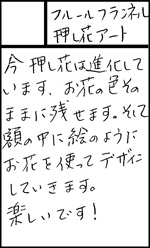 フルールフランネル
押し花アート
今押し花は進化して
います、お花の色その
ままに残せます。そして
額の中に絵のように
お花を使ってデザイン
していきます。
楽しいです!